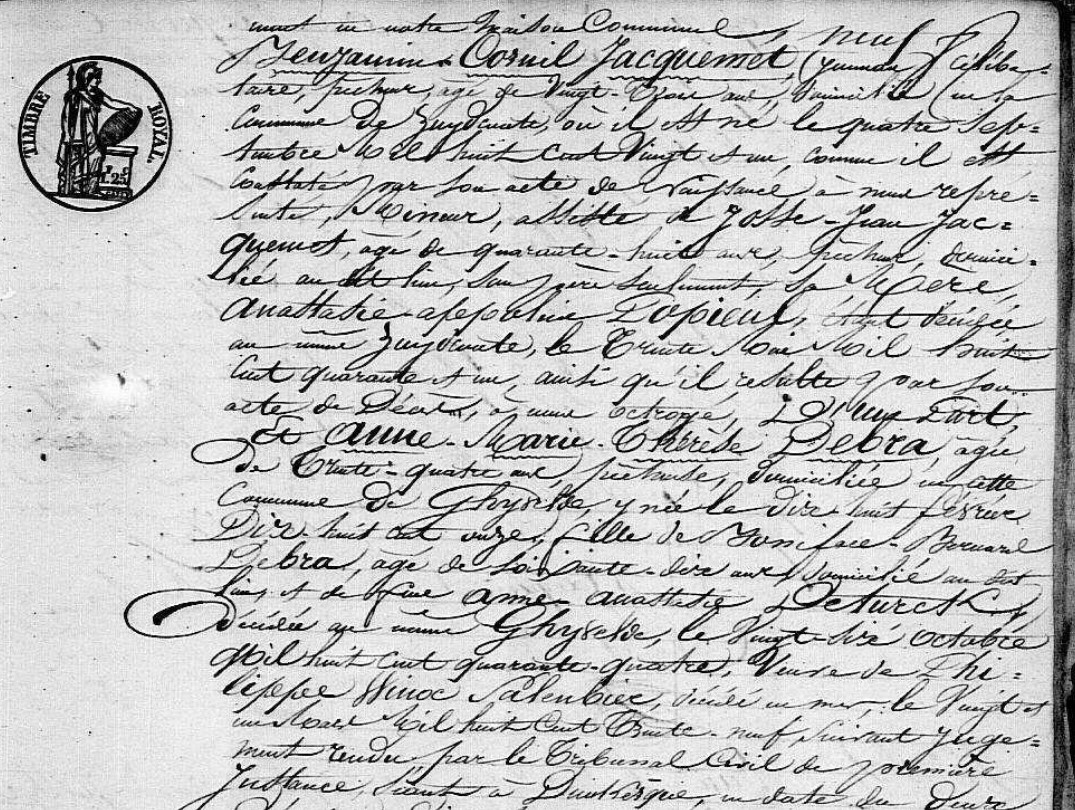 TIMBRE ROYAL.
1.25
ment en notre Maison Commune
Benjamin-Cornil Jacquemet, céliba-
taire, pêcheur, âgé de Vingt-trois ans, domicilié en la
Commune de Zuydcoote, où il est né le quatre Sep-
tembre Mil huit cent Vingt et un, comme il est
constaté par son acte de Naissance, à nous repré-
senté, Mineur, assisté de Josse-Jean Jac-
quemet, âgé de quarante-huit ans, pêcheur, domici-
lié au dit lieu, son père seulement, sa Mère,
Anastasie-appoline Dopieul, étant décédée
au même Zuydcoote, le Trente Mai Mil huit
Cent quarante et un, ainsi qu'il résulte par son
acte de Décès, à nous octroyé, D'une Part,
Et Anne-Marie-Thérèse Debra, agée
de Trente-quatre ans, pêcheuse, domiciliée en cette
Commune de Ghyvelde, y née le dix huit février
Dix-huit cent onze, fille de Boniface-Bernard
Debra, agé de soixante-dix ans, domicilié au dit
lieu, et de feue anne-anastasie Deturck,
décédée au même Ghyvelde, le Vingt-six octobre
Mil huit Cent quarante-quatre, Veuve de Phi-
lippe Winoc Palenbier, décédé en mer, le Vingt et
un Mars Mil huit Cent Trente-neuf, suivant juge-
ment rendu par le Tribunal Civil de première
Instance, séant à Dunkerque, en date du Douze